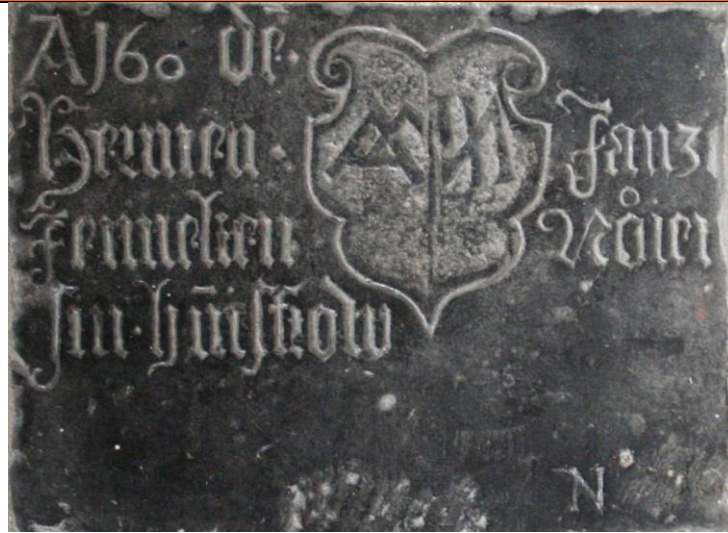 A 1560 de.
Hermen · Janz
Fenneken Möier
sin · hůisfrow
N